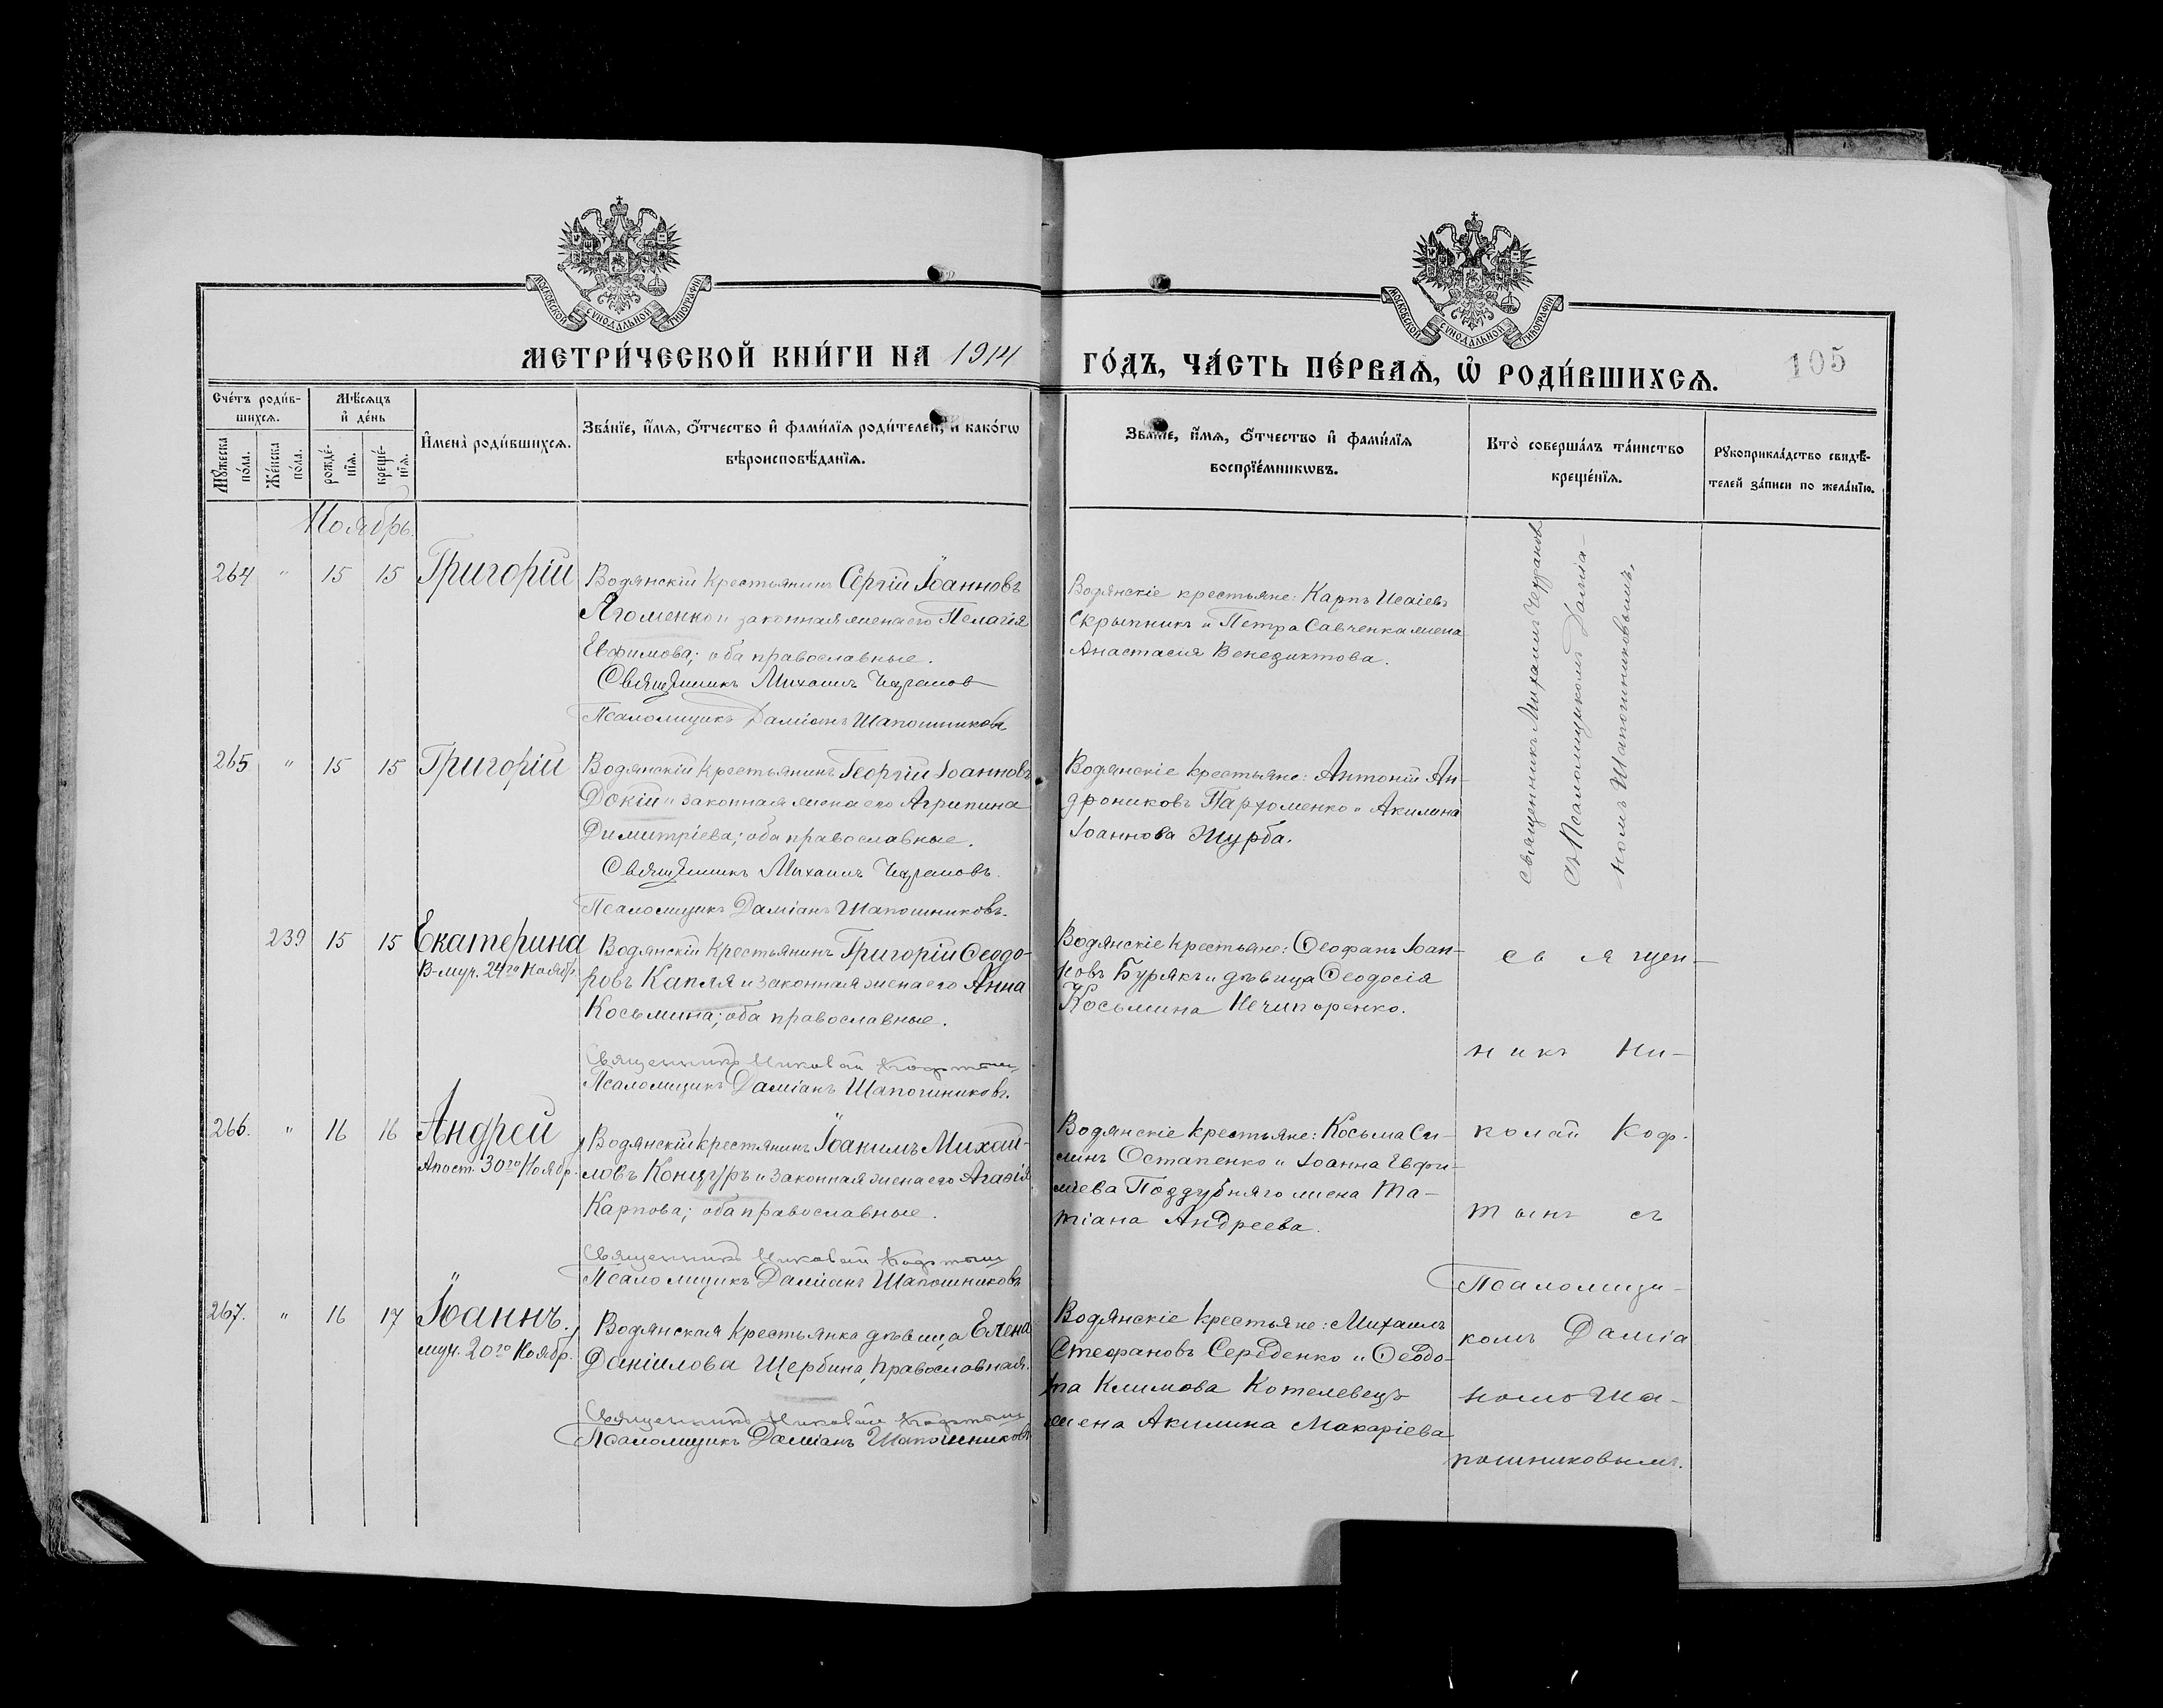 МОСКОВСКОЙ СУНОДАЛЬНОЙ ТИПОГРАФІИ
МОСКОВСКОЙ СУНОДАЛЬНОЙ ТИПОГРАФІИ
МЕТРИ́ЧЕСКОЙ КНИ́ГИ НА 1914
ГО́ДЪ, ЧА́СТЬ ПЕ́РВАѦ, Ѡ҆ РОДИ́ВШИХСѦ.
105
Сче́тъ роди́в-
шихсѧ.
Мѣ́сѧцъ
и҆ де́нь
Мꙋ́жеска
по́ла.
Же́нска
по́ла.
рожде́-
нїѧ.
креще́-
нїѧ.
И҆мена̀ роди́вшихсѧ.
Зва́нїе, и҆́мѧ, ѻ҆́тчество и҆ фами́лїѧ роди́телей, и҆ како́гѡ
вѣроисповѣ́данїѧ.
Зва́нїе, и҆́мѧ, ѻ҆́тчество и҆ фами́лїѧ
воспрїе́мникѡвъ.
Кто̀ соверша́лъ та́инство
креще́нїѧ.
Рꙋкоприкла́дство свидѣ́-
телей за́писи по жела́нїю.
Ноябрь.
264 " 15 15 Григорій
Водянскій крестьянинъ Сергій Іоанновъ
Ягоменко и законная жена его Пелагія
Евфимова; оба православные.
Священникъ Михаилъ
Псаломщикъ Даміанъ Шапошниковъ
Водянскіе крестьяне: Карпъ Исаіевъ
Скрыпникъ и Петра Савченка жена
Анастасія Венедиктова.
Священникъ Михаилъ
съ Псаломщикомъ Даміа-
номъ Шапошниковымъ.
265 " 15 15 Григорій
Водянскій крестьянинъ Георгій Іоанновъ
Докій и законная жена его Агрипина
Димитріева; оба православные.
Священникъ Михаилъ
Псаломщикъ Даміанъ Шапошниковъ.
Водянскіе крестьяне: Антоній Ан-
дрониковъ Пархоменко и Акилина
Іоаннова Журба.
239 15 15 Екатерина
В-муч. 24го Ноябр.
Водянскій крестьянинъ Григорій Ѳеодо-
ровъ Капля и законная жена его Анна
Косьмина; оба православные.
Священникъ Николай Кофтынъ
Псаломщикъ Даміанъ Шапошниковъ.
Водянскіе крестьяне: Ѳеофанъ Іоан-
новъ Бурякъ и дѣвица Ѳеодосія
Косьмина Нечипоренко.
Священ-
никъ Ни-
колай Коф-
тынъ съ
Псаломщи-
комъ Даміа
номъ Ша-
пошниковымъ.
266. " 16 16 Андрей
Апост. 30го Ноябр.
Водянскій крестянинъ Іоакимъ Михай-
ловъ Концуръ и законная жена его Агаѳія
Карпова; оба православные.
Священникъ Николай Кофтынъ
Псаломщикъ Даміанъ Шапошниковъ
Водянскіе крестьяне: Косьма Си-
линъ Остапенко и Іоанна Евфи-
міева Поддубняго жена Та-
тіана Андреева.
267. " 16 17 Іоаннъ.
муч. 20го Ноябр.
Водянская крестьянка дѣвица Елена
Даніилова Щербина, православная.
Священникъ Николай Кофтынъ
Псаломщикъ Даміанъ Шапошниковъ
Водянскіе крестьяне: Михаилъ
Стефановъ Середенко и Ѳеодо-
та Климова Котелевецъ
жена Акилина Макаріева